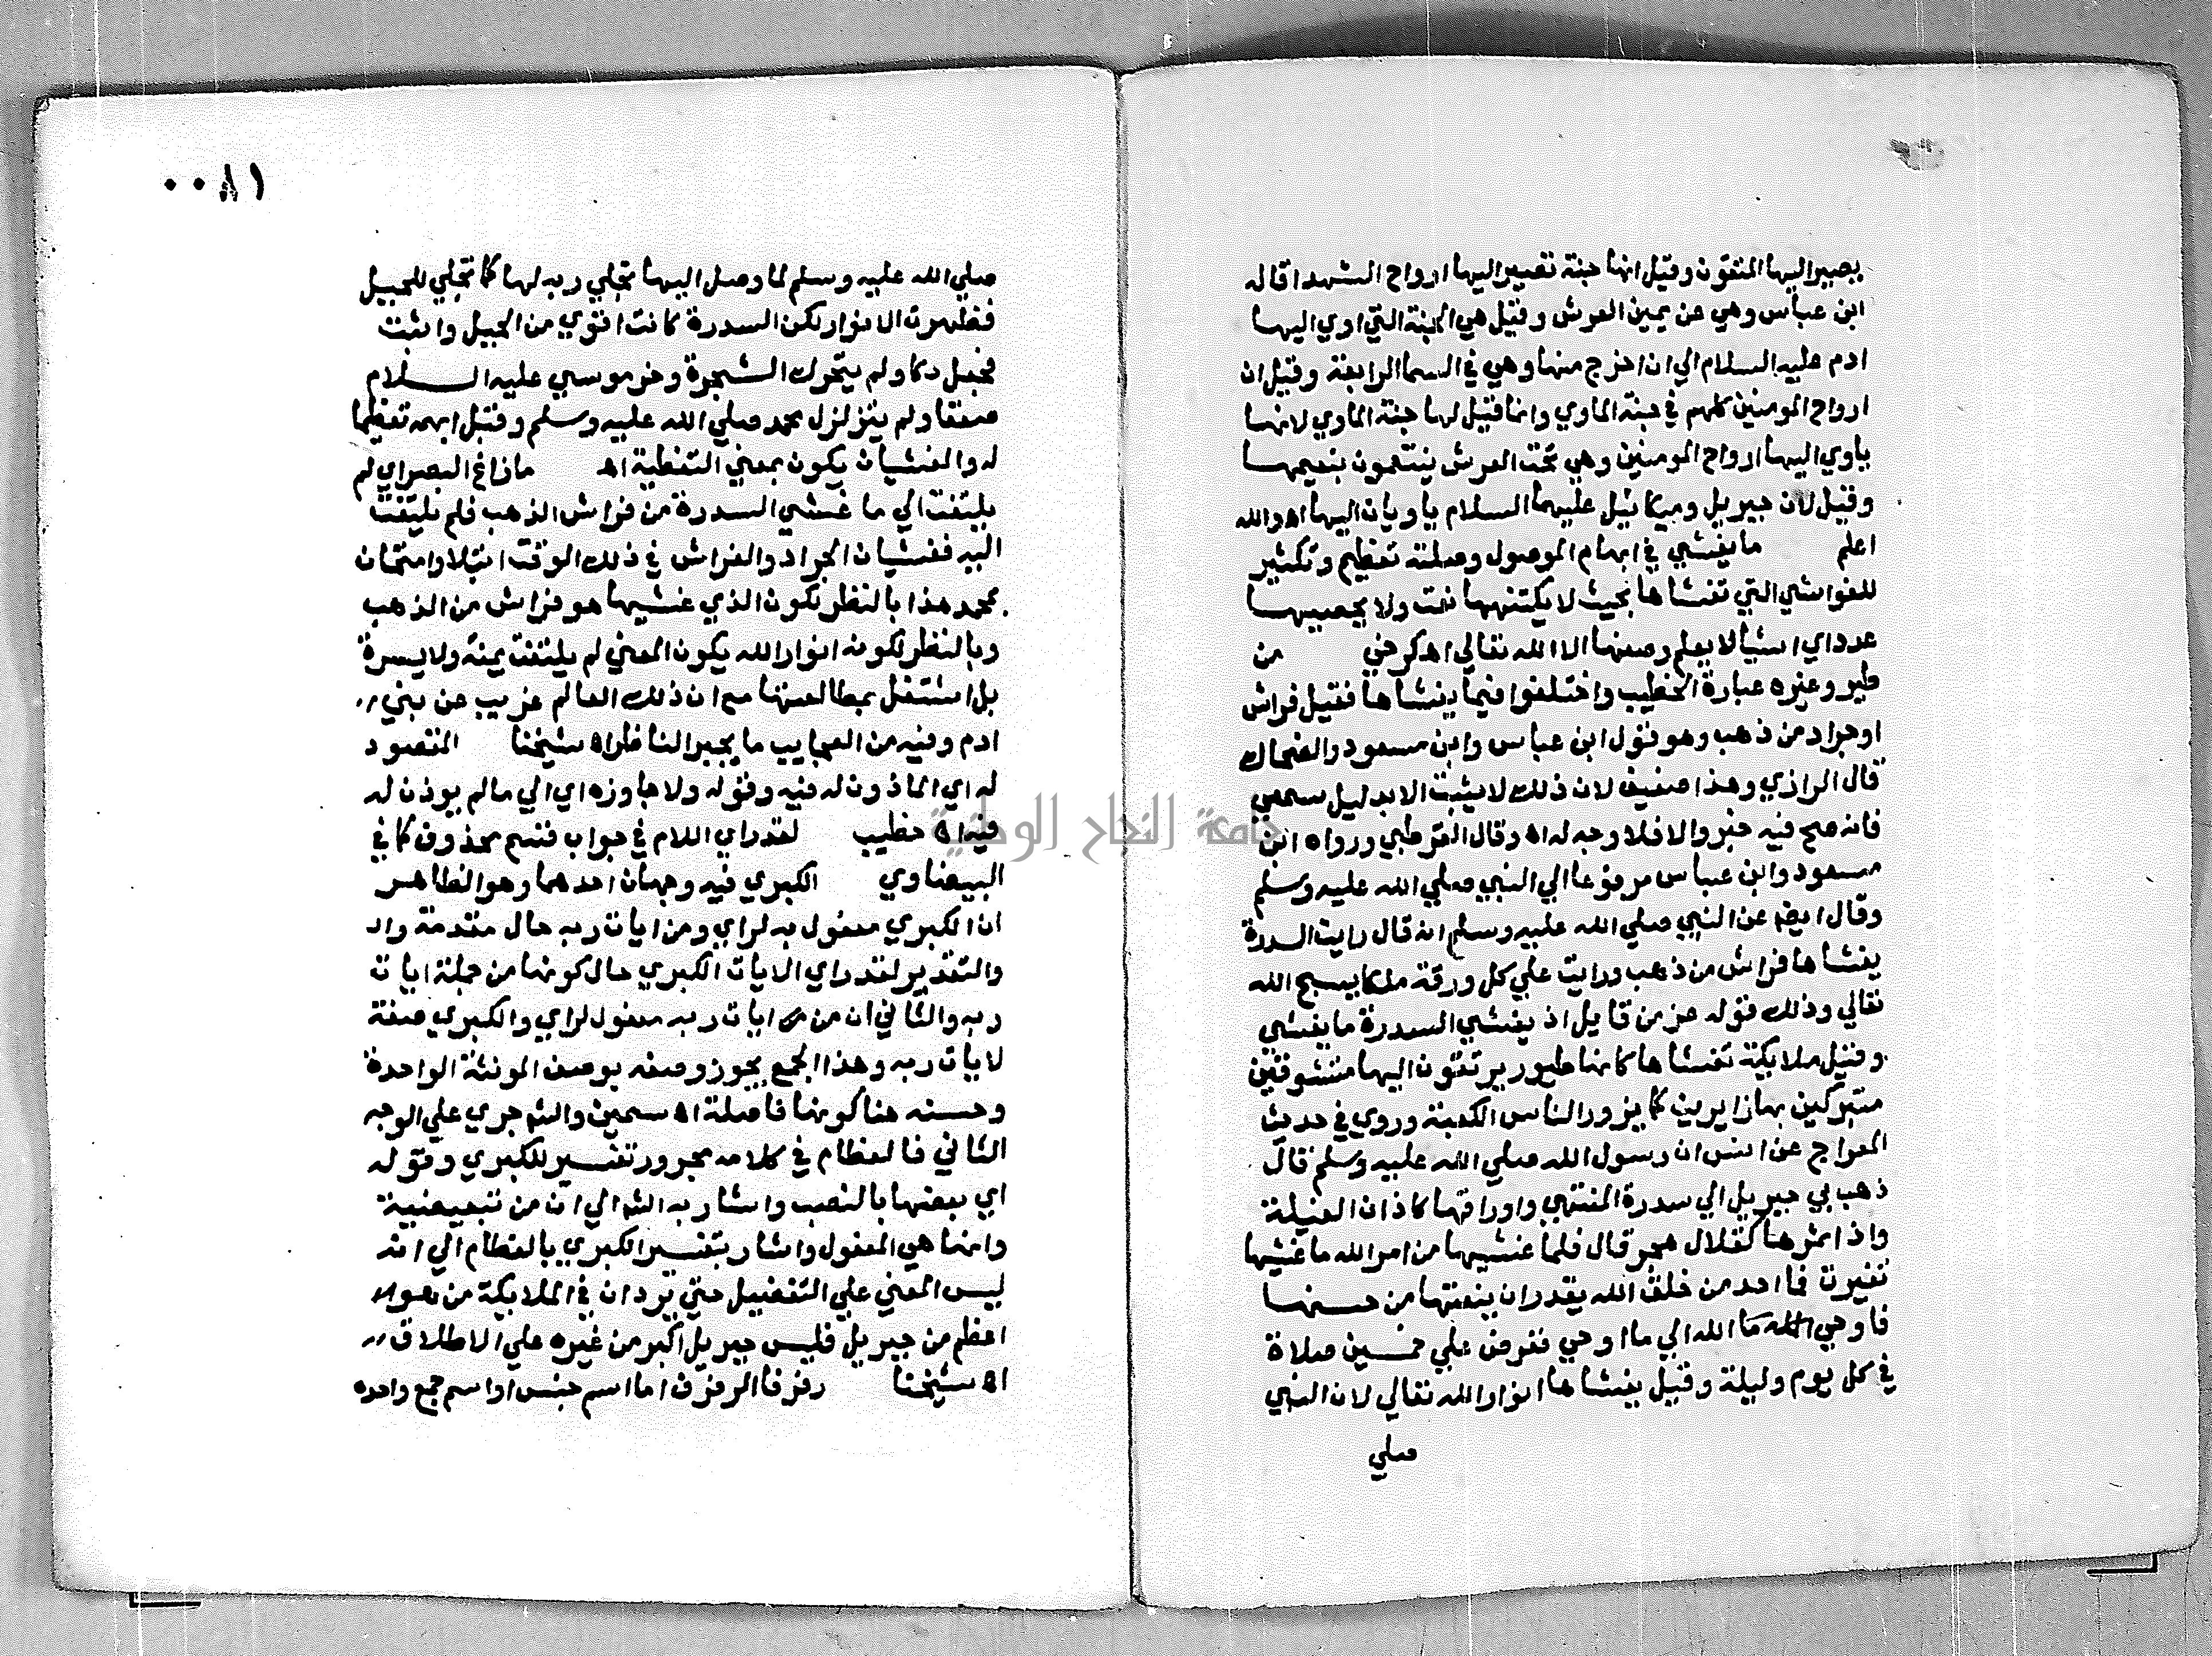 يصير اليها المتقون وقيل انها جنة تصير اليها ارواح الشهدا قاله
ابن عباس وهي عن يمين العرش وقيل هي الجنة التي اوي اليها
ادم عليه السلام الي ان اخرج منها وهي في السما الرابعة وقيل ان
ارواح المومنين كلهم في جنة الماوي وانما قيل لها جنة الماوي لانها
ياوي اليها ارواح المومنين وهي تحت العرش ينتعمون بنعيمها
وقيل لان جبريل وميكائيل عليهما السلام ياويان اليها اه والله
اعلم ما يغشي في ابهام الموصول وصلته تعظيم وتكثير
للغواشي التي تغشاها بحيث لا يكتنهها نعت ولا يحصيها
عدد اي اشيا لا يعلم وصفها الا الله تعالي اه كرخي من
طير وغيره عبارة الخطيب واختلفوا فيما يغشاها فقيل فراش
او جراد من ذهب وهو قول ابن عباس وابن مسعود والضحاك
قال الرازي وهذا ضعيف لان ذلك لا يثبت الا بدليل سمعي
فان صح فيه خبر والا فلا وجه له اه وقال القرطبي ورواه ابن
مسعود وابن عباس مرفوعا الي النبي صلي الله عليه وسلم
وقال ايضا عن النبي صلي الله عليه وسلم انه قال رايت السدرة
يغشاها فراش من ذهب ورايت علي كل ورقة ملكا يسبح الله
تعالي وذلك قوله عز من قايل اذ يغشي السدرة ما يغشي
وقيل ملايكة تغشاها كانها طيور يرتقون اليها متشوقين
متبركين بها زايرين كما يزور الناس الكعبة وروي في حديث
المعراج عن انس ان رسول الله صلي الله عليه وسلم قال
ذهب بي جبريل الي سدرة المنتهي واوراقها كاذان الفيلة
واذا ثمرها كقلال هجر قال فلما غشيها من امر الله ما غشيها
تغيرت فما احد من خلق الله يقدر ان ينعتها من حسنها
فاوحي الله الي ما اوحي ففرض علي خمسين صلاة
في كل يوم وليلة وقيل يغشاها انوار الله تعالي لان النبي
صلي
٠٠٨١
صلي الله عليه وسلم لما وصل اليها تجلي ربه لها كما تجلي للجبل
فظهرت الانوار لكن السدرة كانت اقوي من الجبل واثبت
فجعل دكا ولم يتحرك الشجرة وخر موسي عليه السلام
صعقا ولم يتزلزل محمد صلي الله عليه وسلم وقيل ابهمه تعظيما
له والغشيان يكون بمعني التغطية اه ما زاغ البصر اي لم
يلتفت الي ما غشي السدرة من فراش الذهب فلم يلتفت
اليه فغشيان الجراد والفراش في ذلك الوقت ابتلا وامتحان
لمحمد هذا بالنظر لكون الذي غشيها هو فراش من الذهب
وبالنظر لكونه انوار الله يكون المعني لم يلتفت يمنة ولا يسرة
بل اشتغل بمطالعتها مع ان ذلك العالم غريب عن بني
ادم وفيه من العجايب ما يحير الناظر اه شيخنا المقصود
له اي الماذون له فيه وقوله ولا جاوزه اي الي ما لم يوذن له
فيه اه خطيب لقد راي اللام في جواب قسم محذوف كما في
البيضاوي الكبري فيه وجهان احدهما وهو الظاهر
ان الكبري مفعول به لراي ومن ايات ربه حال مقدمة وال
والتقدير لقد راي الايات الكبري حال كونها من جملة ايات
ربه والثاني ان من ايات ربه مفعول لراي والكبري صفة
لايات ربه وهذا الجمع يجوز وصفه بوصف المونثة الواحدة
وحسنه هنا كونها فاصلة اه سمين والشم جري علي الوجه
الثاني فالعظام في كلامه مجرور تفسير للكبري وقوله
اي بعضها بالنصب واشار به الشم الي ان من تبعيضية
وانها هي المفعول واشار بتفسير الكبري بالعظام الي انه
ليس المعني علي التفضيل حتي يرد ان في الملايكة من هو
اعظم من جبريل فليس جبريل اكبر من غيره علي الاطلاق
اه شيخنا رفرفا الرفرف اما اسم جنس او اسم جمع واحده
جامعة النجاح الوطنية